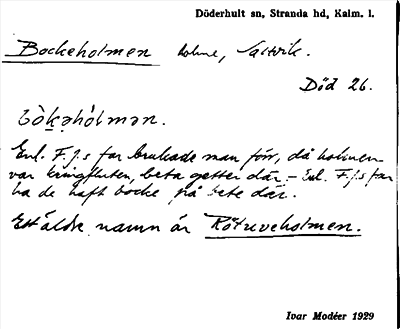 Döderhult sn, Stranda hd, Kalm. l.
Bockeholmen holme, Saltvik.
Död 26.
bòk̬əhól̀mən.
Enl. F. J:s far brukade man förr, då holmen
var kringfluten, beta getter där. – Enl. F. J:s far
ha de haft bocke på bete där.
Ett äldre namn är Rötuveholmen.
Ivar Modéer 1929